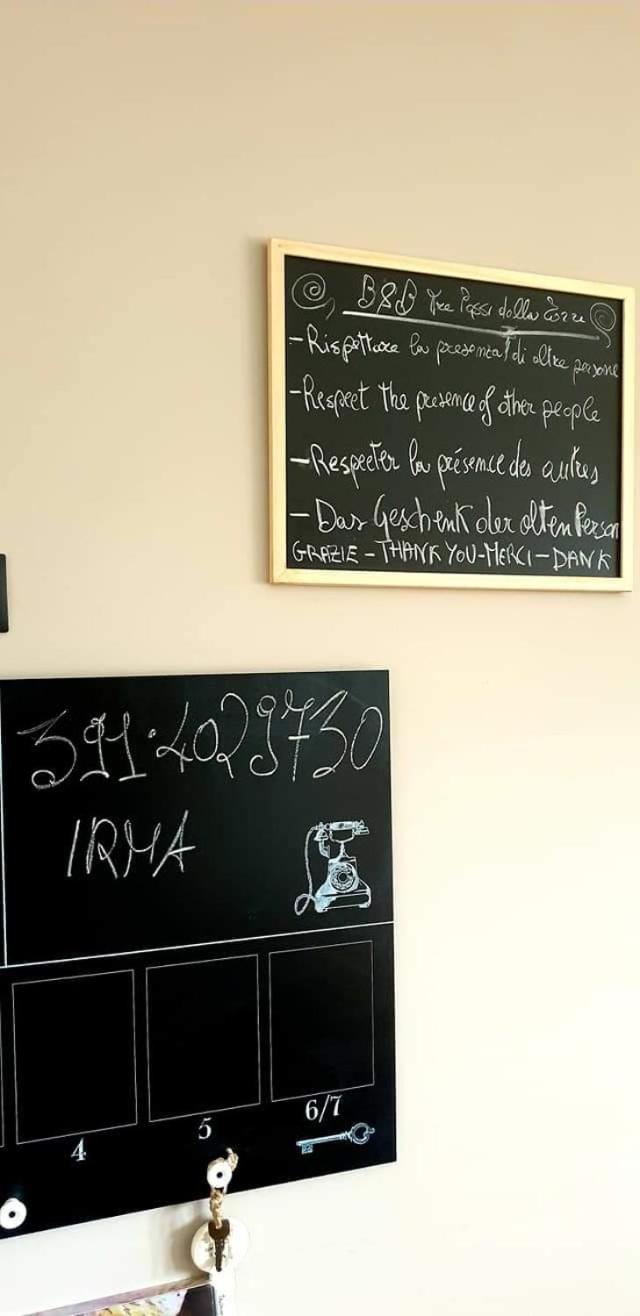 B&B Tre Passi dalla Torre
- Rispettare la presenza di altre persone
- Respect the presence of other people
- Respecter la présence des autres
- Das Geschenk der alten Person
GRAZIE - THANK YOU - MERCI - DANK
391·4029730
IRMA
4
5
6/7